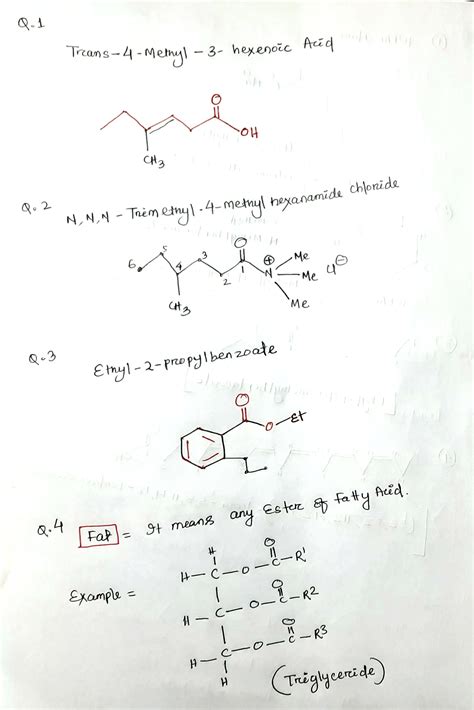 Q.1
Trans-4-Methyl-3-hexenoic Acid
O
OH
CH3
Q.2
N,N,N-Trimethyl-4-methyl hexanamide chloride
O
6 5 4 3 2 1 N ⊕ Me
Me Cl⊖
Me
CH3
Q.3
Ethyl-2-propylbenzoate
O
O-Et
Q.4
Fat = It means any Ester of Fatty Acid.
Example =
H O
H-C-O-C-R1
O
H-C-O-C-R2
O
H-C-O-C-R3
H
(Triglyceride)